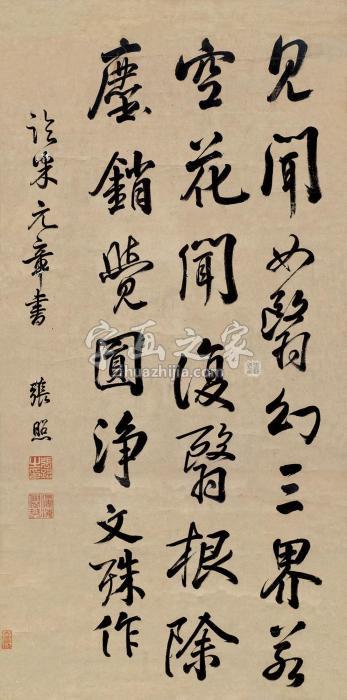 見聞如翳幻三界若
空花聞復翳根除
塵銷覺圓淨文殊作
臨米元章書 張照
字画之家
zihuazhijia.com